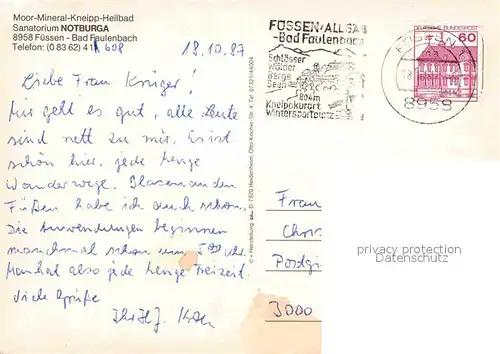 Moor-Mineral-Kneipp-Heilbad
Sanatorium NOTBURGA
8958 Füssen - Bad Faulenbach
Telefon: (0 83 62) 4
608
18.10.87
Liebe Frau Krüger!
Mir geht es gut, alle Leute
sind nett zu mir. Es ist
schön hier, jede Menge
Wanderwege. Blasen an den
Füßen habe ich auch schon.
Die Anwendungen beginnen
manchmal schon um 5 Uhr.
Man hat also jede Menge Freizeit.
Viele Grüße
Ihr H.J.
FÜSSEN·ALLGÄ
-Bad Faulenbach
Schlösser
Wälder
Berge
Seen
804m
Kneipkurort
Wintersportplatz
DEUTSCHE BUNDESPOST
60
8958
Frau
Chris
Postgi
3000
privacy protection
Datenschutz